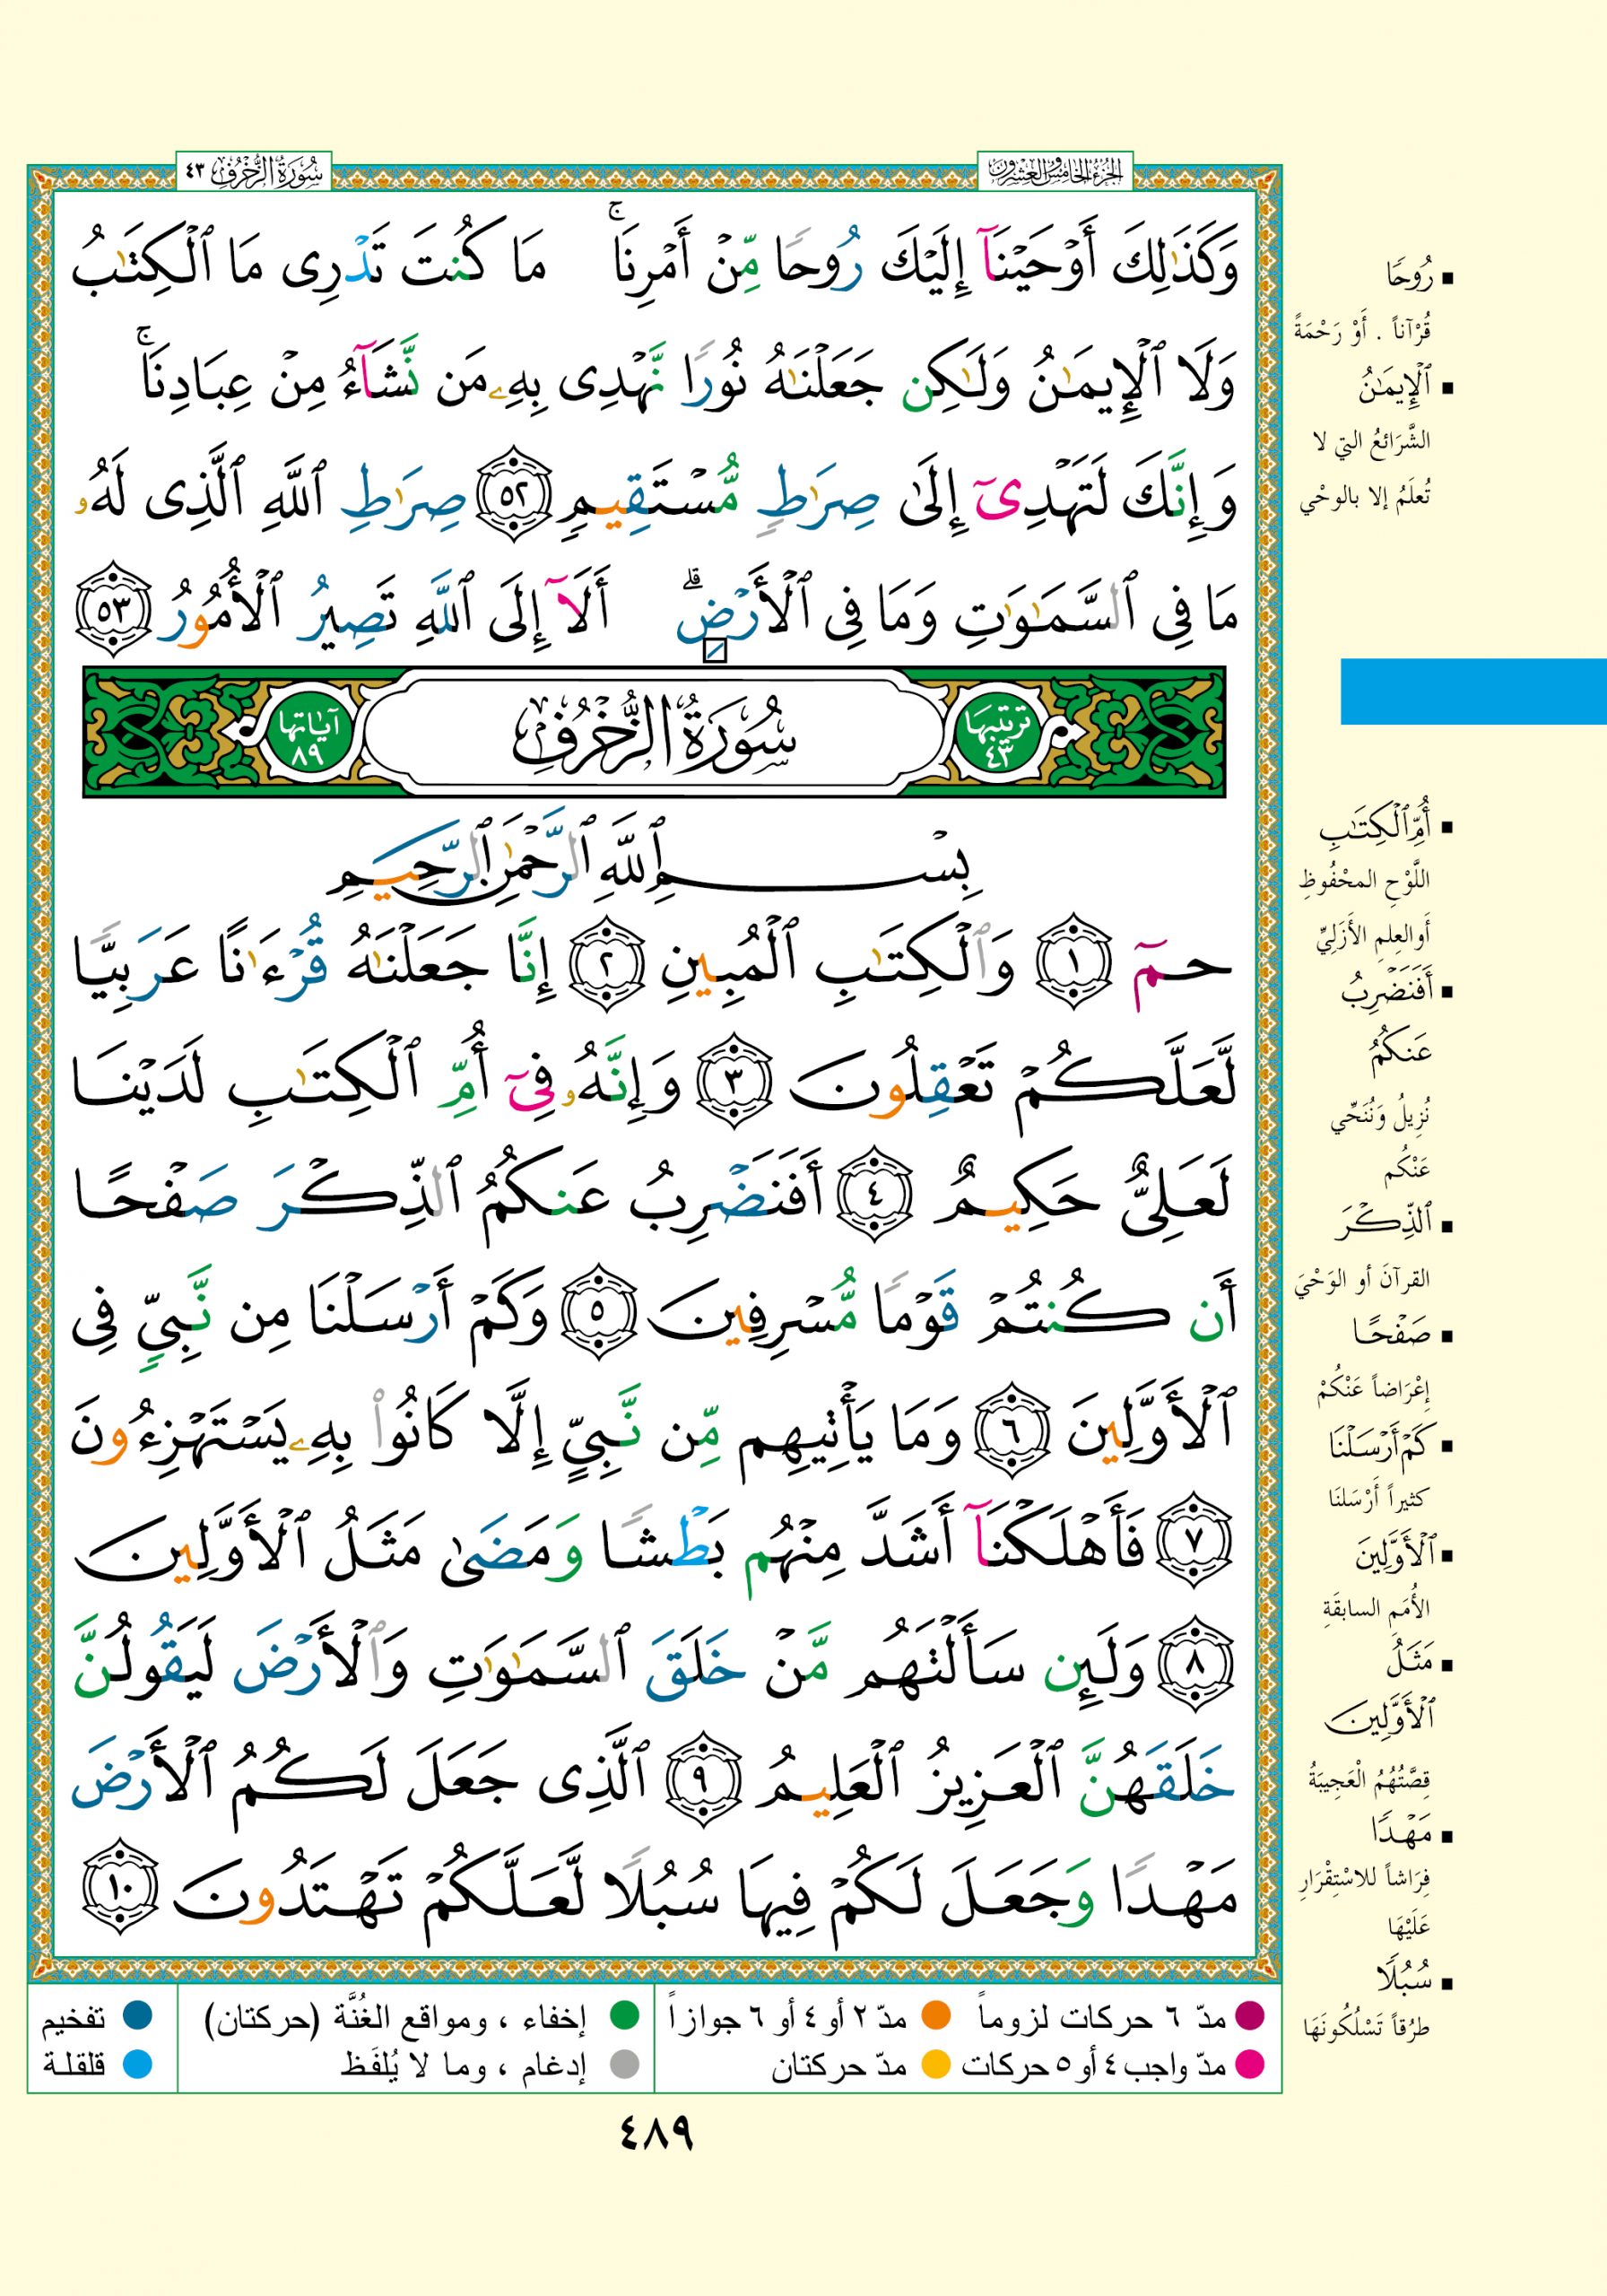 الجزء الخامس والعشرون
سُورَةُ الزُّخْرُفِ ٤٣
وَكَذَٰلِكَ أَوۡحَيۡنَآ إِلَيۡكَ رُوحًا مِّنۡ أَمۡرِنَاۚ مَا كُنتَ تَدۡرِى مَا ٱلۡكِتَٰبُ
وَلَا ٱلۡإِيمَٰنُ وَلَٰكِن جَعَلۡنَٰهُ نُورًا نَّهۡدِى بِهِۦ مَن نَّشَآءُ مِنۡ عِبَادِنَاۚ
وَإِنَّكَ لَتَهۡدِىٓ إِلَىٰ صِرَٰطٍ مُّسۡتَقِيمٍ ٥٢ صِرَٰطِ ٱللَّهِ ٱلَّذِى لَهُۥ
مَا فِى ٱلسَّمَٰوَٰتِ وَمَا فِى ٱلۡأَرۡضِۗ أَلَآ إِلَى ٱللَّهِ تَصِيرُ ٱلۡأُمُورُ ٥٣
ترتيبها ٤٣
سُورَةُ الزُّخْرُفِ
آياتها ٨٩
بِسۡمِ ٱللَّهِ ٱلرَّحۡمَٰنِ ٱلرَّحِيمِ
حمٓ ١ وَٱلۡكِتَٰبِ ٱلۡمُبِينِ ٢ إِنَّا جَعَلۡنَٰهُ قُرۡءَٰنًا عَرَبِيًّا
لَّعَلَّكُمۡ تَعۡقِلُونَ ٣ وَإِنَّهُۥ فِىٓ أُمِّ ٱلۡكِتَٰبِ لَدَيۡنَا
لَعَلِىٌّ حَكِيمٌ ٤ أَفَنَضۡرِبُ عَنكُمُ ٱلذِّكۡرَ صَفۡحًا
أَن كُنتُمۡ قَوۡمًا مُّسۡرِفِينَ ٥ وَكَمۡ أَرۡسَلۡنَا مِن نَّبِىٍّ فِى
ٱلۡأَوَّلِينَ ٦ وَمَا يَأۡتِيهِم مِّن نَّبِىٍّ إِلَّا كَانُوا۟ بِهِۦ يَسۡتَهۡزِءُونَ
٧ فَأَهۡلَكۡنَآ أَشَدَّ مِنۡهُم بَطۡشًا وَمَضَىٰ مَثَلُ ٱلۡأَوَّلِينَ
٨ وَلَئِن سَأَلۡتَهُم مَّنۡ خَلَقَ ٱلسَّمَٰوَٰتِ وَٱلۡأَرۡضَ لَيَقُولُنَّ
خَلَقَهُنَّ ٱلۡعَزِيزُ ٱلۡعَلِيمُ ٩ ٱلَّذِى جَعَلَ لَكُمُ ٱلۡأَرۡضَ
مَهۡدًا وَجَعَلَ لَكُمۡ فِيهَا سُبُلًا لَّعَلَّكُمۡ تَهۡتَدُونَ ١٠
▪ رُوحًا
قُرْآناً . أَوْ رَحْمَةً
▪ ٱلۡإِيمَٰنُ
الشَّرَائعُ التي لا
تُعلَمُ إلا بالوحْي
▪ أُمِّ ٱلۡكِتَٰبِ
اللَّوْحِ المحْفُوظِ
أَوالعِلمِ الأَزَلِيِّ
▪ أَفَنَضۡرِبُ
عَنكُمُ
نُزِيلُ وَنُنَحِّي
عَنْكُم
▪ ٱلذِّكۡرَ
القرآنَ أو الوَحْيَ
▪ صَفۡحًا
إِعْرَاضاً عَنْكُمْ
▪ كَمۡ أَرۡسَلۡنَا
كثيراً أَرْسَلنَا
▪ ٱلۡأَوَّلِينَ
الأُمَمِ السابقَةِ
▪ مَثَلُ
ٱلۡأَوَّلِينَ
قِصَّتُهُمُ الْعَجِيبَةُ
▪ مَهۡدًا
فِرَاشاً للاسْتِقْرَارِ
عَلَيْهَا
▪ سُبُلًا
طرُقاً تَسْلُكُونَهَا
مدّ ٦ حركات لزوماً مدّ ٢ أو ٤ أو ٦ جوازاً إخفاء ، ومواقع الغُنَّة (حركتان) تفخيم
مدّ واجب ٤ أو ٥ حركات مدّ حركتان إدغام ، وما لا يُلفَظ قلقلة
٤٨٩